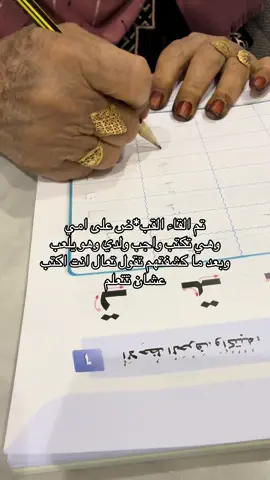 تم القاء القب*ض على امي
وهي تكتب واجب ولدي وهو يلعب
وبعد ما كشفتهم تقول تعال انت اكتب
عشان تتعلم
ألاحظ الحرف، وأكتبه:
٦